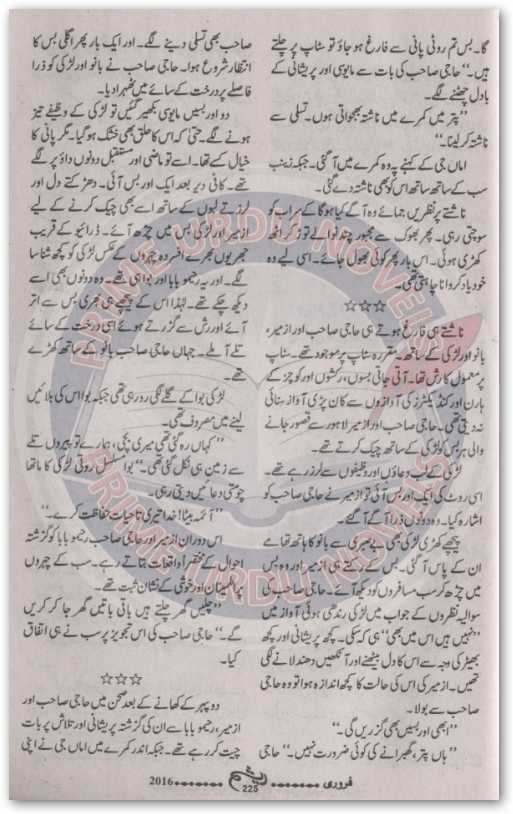 گا۔ بس تم روٹی پانی سے فارغ ہو جاؤ تو سٹاپ پر چلتے
ہیں۔“ حاجی صاحب کی بات سے مایوسی اور پریشانی کے
بادل چھٹنے لگے۔
”پتر میں کمرے میں ناشتہ بھجواتی ہوں۔ تسلی سے
ناشتہ کر لینا۔“
اماں جی کے کہنے پہ وہ کمرے میں آ گئی۔ جبکہ زینب
سب کے ساتھ ساتھ اس کو بھی ناشتہ دے گئی۔
ناشتے پر نظریں جمائے وہ آگے کیا ہوگا کے سراب کو
سوچتی رہی۔ پھر بھوک سے مجبور چند نوالے توڑ کر اٹھ
کھڑی ہوئی۔ اس بار پھر کوئی بھول جائے۔ اسی لیے وہ
خود یاد کروانا چاہتی تھی۔
☆☆☆
ناشتے ہی فارغ ہوتے ہی حاجی صاحب اور ازمیر،
بانو اور لڑکی کے ساتھ۔ مقررہ سٹاپ پر موجود تھے۔ سٹاپ
پر معمول کا رش تھا۔ آتی جاتی بسوں، رکشوں اور کوچز کے
ہارن اور کنڈیکٹرز کی آوازوں سے کان پڑی آواز سنائی
نہ دیتی تھی۔ حاجی صاحب اور ازمیر لاہور سے قصور جانے
والی ہر بس کو لڑکی کے ساتھ چیک کرتے تھے۔
لڑکی کے لب دعاؤں اور وظیفوں سے لرز رہے تھے۔
اسی روٹ کی ایک اور بس آئی تو ازمیر نے حاجی صاحب کو
اشارہ کیا۔ وہ دونوں ذرا آگے آ گئے۔
پیچھے کھڑی لڑکی بھی بے صبری سے بانو کا ہاتھ تھامے
ان کے پاس آ گئی۔ بس کے رکتے ہی ازمیر اور وہ بس
میں چڑھ کر سب مسافروں کو دیکھ آئے۔ حاجی صاحب کی
سوالیہ نظروں کے جواب میں لڑکی رندھی ہوئی آواز میں
”نہیں ہیں اس میں بھی“ ہی کہہ سکی۔ کچھ پریشانی اور کچھ
بھیڑ کی وجہ سے اس کا دل بیٹھنے اور آنکھیں دھندلانے لگی
تھیں۔ ازمیر کی اس کی حالت کا کچھ اندازہ ہوا تو وہ حاجی
صاحب سے بولا۔
”ابھی اور بسیں بھی گزریں گی۔“
”ہاں پتر، گھبرانے کی کوئی ضرورت نہیں۔“ حاجی
صاحب بھی تسلی دینے لگے۔ اور ایک بار پھر اگلی بس کا
انتظار شروع ہوا۔ حاجی صاحب نے بانو اور لڑکی کو ذرا
فاصلے پر درخت کے سائے میں ٹھہرا دیا۔
دو اور بسیں مایوسی بکھیر گئیں تو لڑکی کے وظیفے تیز
ہونے لگے۔ حتیٰ کہ اس کا حلق بھی خشک ہو گیا۔ مگر پانی کا
خیال کسے تھا۔ اسے تو ماضی اور مستقبل دونوں داؤ پر لگے
تھے۔ کافی دیر بعد ایک اور بس آئی۔ دھڑکتے دل اور
لرزتے لبوں کے ساتھ اسے بھی چیک کرنے کے لیے
ازمیر اور لڑکی بس میں چڑھ آئے۔ ڈرائیو کے قریب
جھریوں بھرے افسردہ چہروں کے عکس لڑکی کو کچھ شناسا
لگے۔ اور یہ رحیمو بابا اور بوا ہی تھے۔ وہ دونوں بھی اسے
دیکھ چکے تھے۔ لہٰذا اس کے پیچھے ہی بھری بس سے اتر
آئے اور رش سے گزرتے ہوئے اسی درخت کے سائے
تلے آ ملے۔ جہاں حاجی صاحب بانو کے ساتھ کھڑے
تھے۔
لڑکی بوا کے گلے لگی رو رہی تھی جبکہ بوا اس کی بلائیں
لینے میں مصروف تھی۔
”کہاں رہ گئی تھی میری بچی، ہمارے تو پیروں تلے
سے زمین ہی نکل گئی تھی۔“ بوا مسلسل روتی لڑکی کا ماتھا
چومتی دعائیں دیتی رہی۔
”آئمہ بیٹا! خدا تیری تاحیات حفاظت کرے۔“
اس دوران ازمیر اور حاجی صاحب رحیمو بابا کو گزشتہ
احوال کے مختصراً واقعات بتاتے رہے۔ سب کے چہروں
پر اطمینان اور خوشی کے نشان ثبت تھے۔
”چلیں گھر چلتے ہیں باقی باتیں گھر جا کر کریں
گے۔“ حاجی صاحب کی اس تجویز پر سب نے ہی اتفاق
کیا۔
☆☆☆
دوپہر کے کھانے کے بعد صحن میں حاجی صاحب اور
ازمیر، رحیمو بابا سے ان کی گزشتہ پریشانی اور تلاش پر بات
چیت کر رہے تھے۔ جبکہ اندر کمرے میں اماں جی نے اپنی
فروری ریشم 225 2016
PRIME URDU NOVELS
PRIME URDU NOVELS